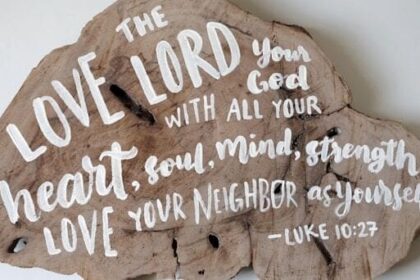 LOVE THE LORD your God
WITH ALL YOUR
heart, soul, mind, strength
LOVE YOUR NEIGHBOR as yourself
-LUKE 10:27